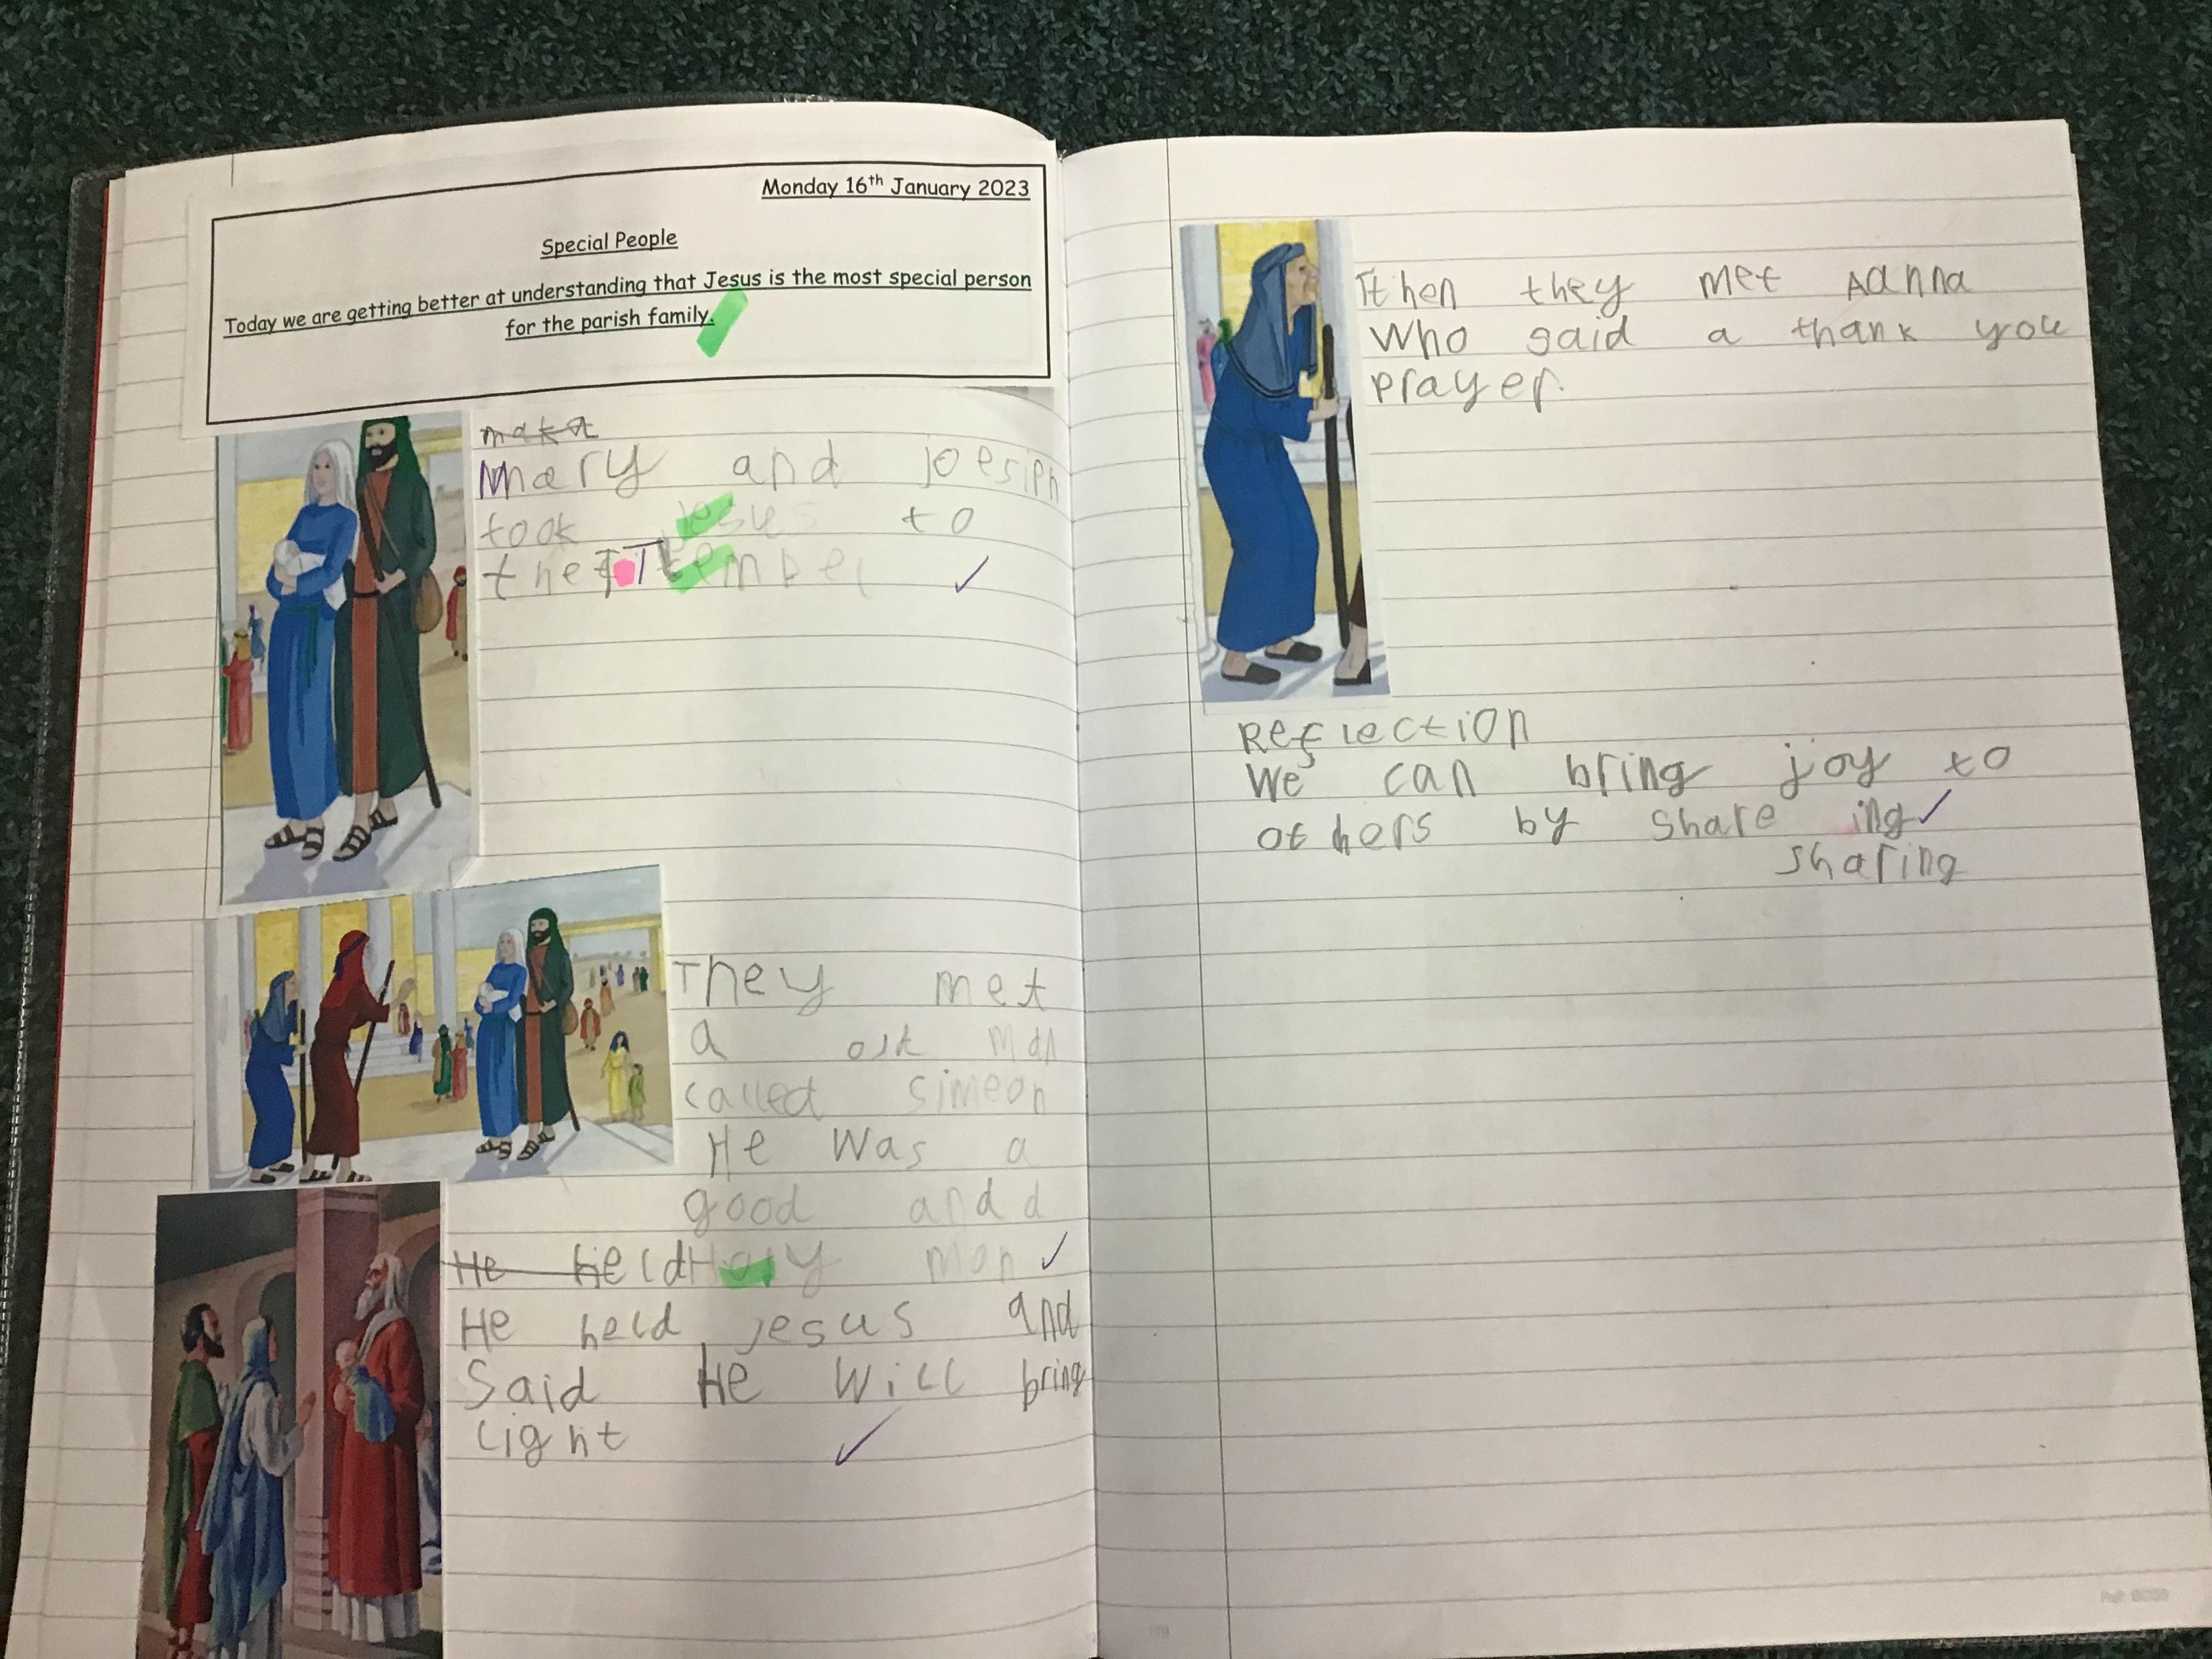 Monday 16th January 2023
Special People
Today we are getting better at understanding that Jesus is the most special person
for the parish family.
Mary and joesiph
took jesus to
the Tempel
They met
a old man
called simeon
He was a
good and d
He held Holy man
He held jesus and
Said He will bring
Light
Then they met Aanna
who said a thank you
prayer.
Reflection
We can bring joy to
others by share ing
sharing